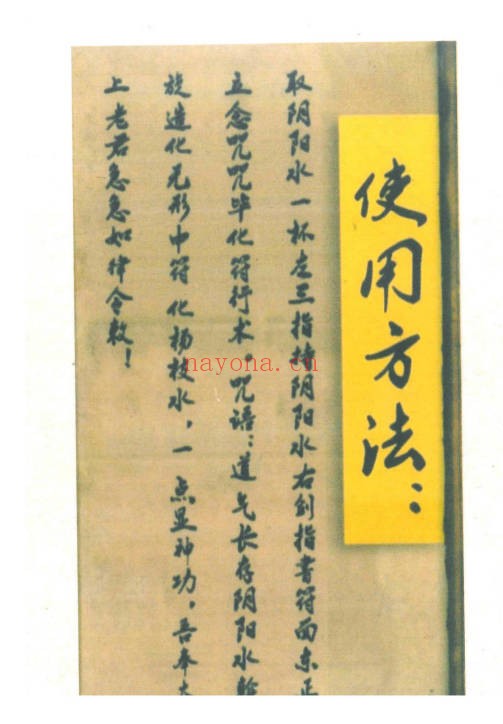 使用方法：
取阴阳水一杯左三指持阴阳水右剑指书符面东正
立念咒咒毕化符行术。咒语：道气长存阴阳水
旋造化无形中符化杨枝水，一点显神功，吾奉
上老君急急如律令敕！
nayona.cn